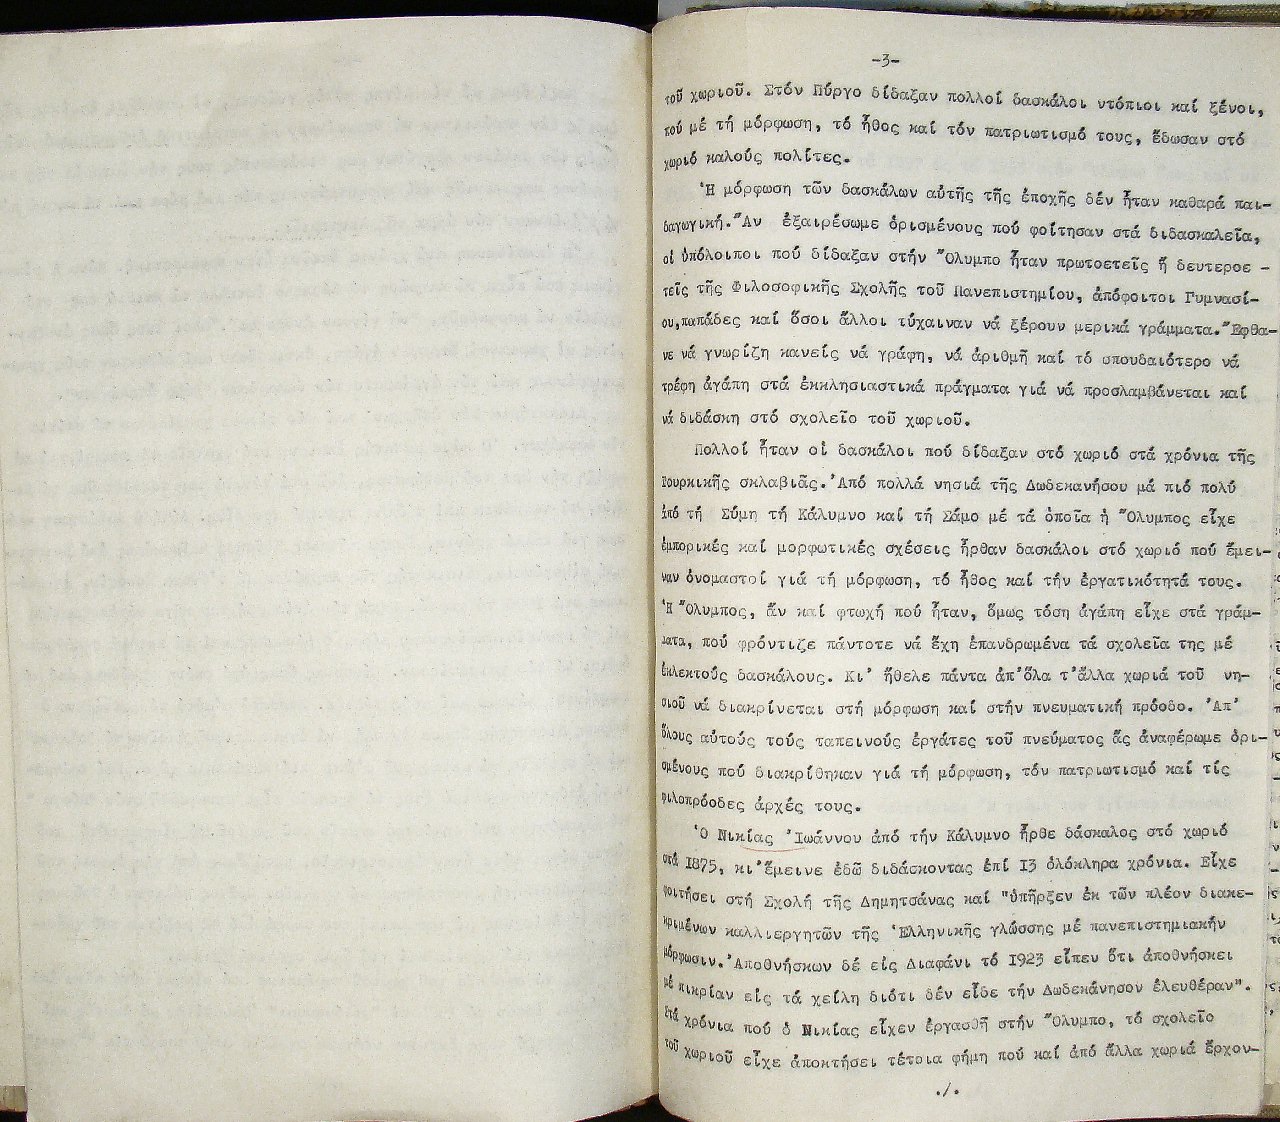 -3-
τοῦ χωριοῦ. Στόν Πύργο δίδαξαν πολλοί δασκάλοι ντόπιοι καί ξένοι,
πού μέ τή μόρφωση, τό ἦθος καί τόν πατριωτισμό τους, ἔδωσαν στό
χωριό καλούς πολίτες.
Ἡ μόρφωση τῶν δασκάλων αὐτῆς τῆς ἐποχῆς δέν ἦταν καθαρά παι-
δαγωγική. Ἄν ἐξαιρέσωμε ὁρισμένους πού φοίτησαν στά διδασκαλεῖα,
οἱ ὑπόλοιποι πού δίδαξαν στήν Ὄλυμπο ἦταν πρωτοετεῖς ἤ δευτεροε -
τεῖς τῆς Φιλοσοφικῆς Σχολῆς τοῦ Πανεπιστημίου, ἀπόφοιτοι Γυμνασί-
ου, παπάδες καί ὅσοι ἄλλοι τύχαιναν νά ξέρουν μερικά γράμματα. Ἔφθα-
νε νά γνωρίζη κανείς νά γράφη, νά ἀριθμῆ καί τό σπουδαιότερο νά
τρέφη ἀγάπη στά ἐκκλησιαστικά πράγματα γιά νά προσλαμβάνεται καί
νά διδάσκη στό σχολεῖο τοῦ χωριοῦ.
Πολλοί ἦταν οἱ δασκάλοι πού δίδαξαν στό χωριό στά χρόνια τῆς
Τουρκικῆς σκλαβιᾶς. Ἀπό πολλά νησιά τῆς Δωδεκανήσου μά πιό πολύ
ἀπό τή Σύμη τή Κάλυμνο καί τή Σάμο μέ τά ὁποῖα ἡ Ὄλυμπος εἶχε
ἐμπορικές καί μορφωτικές σχέσεις ἦρθαν δασκάλοι στό χωριό πού ἔμει-
ναν ὀνομαστοί γιά τή μόρφωση, τό ἦθος καί τήν ἐργατικότητά τους.
Ἡ Ὄλυμπος, ἄν καί φτωχή πού ἦταν, ὅμως τόση ἀγάπη εἶχε στά γράμ-
ματα, πού φρόντιζε πάντοτε νά ἔχη ἐπανδρωμένα τά σχολεῖα της μέ
ἐκλεκτούς δασκάλους. Κι' ἤθελε πάντα ἀπ'ὅλα τ'ἄλλα χωριά τοῦ νη-
σιοῦ νά διακρίνεται στή μόρφωση καί στήν πνευματική πρόοδο. Ἀπ'
ὅλους αὐτούς τούς ταπεινούς ἐργάτες τοῦ πνεύματος ἄς ἀναφέρωμε ὁρι-
σμένους πού διακρίθηκαν γιά τή μόρφωση, τόν πατριωτισμό καί τίς
φιλοπρόοδες ἀρχές τους.
Ὁ Νικίας Ἰωάννου ἀπό τήν Κάλυμνο ἦρθε δάσκαλος στό χωριό
στά 1875, κι'ἔμεινε ἐδῶ διδάσκοντας ἐπί 13 ὁλόκληρα χρόνια. Εἶχε
φοιτήσει στή Σχολή τῆς Δημητσάνας καί "ὑπῆρξεν ἐκ τῶν πλέον διακε-
κριμένων καλλιεργητῶν τῆς Ἑλληνικῆς γλώσσης μέ πανεπιστημιακήν
μόρφωσιν. Ἀποθνήσκων δέ εἰς Διαφάνι τό 1923 εἶπεν ὅτι ἀποθνήσκει
μέ πικρίαν εἰς τά χείλη διότι δέν εἶδε τήν Δωδεκάνησον ἐλευθέραν".
Στά χρόνια πού ὁ Νικίας εἶχεν ἐργασθῆ στήν Ὄλυμπο, τό σχολεῖο
τοῦ χωριοῦ εἶχε ἀποκτήσει τέτοια φήμη πού καί ἀπό ἄλλα χωριά ἔρχον-
./.